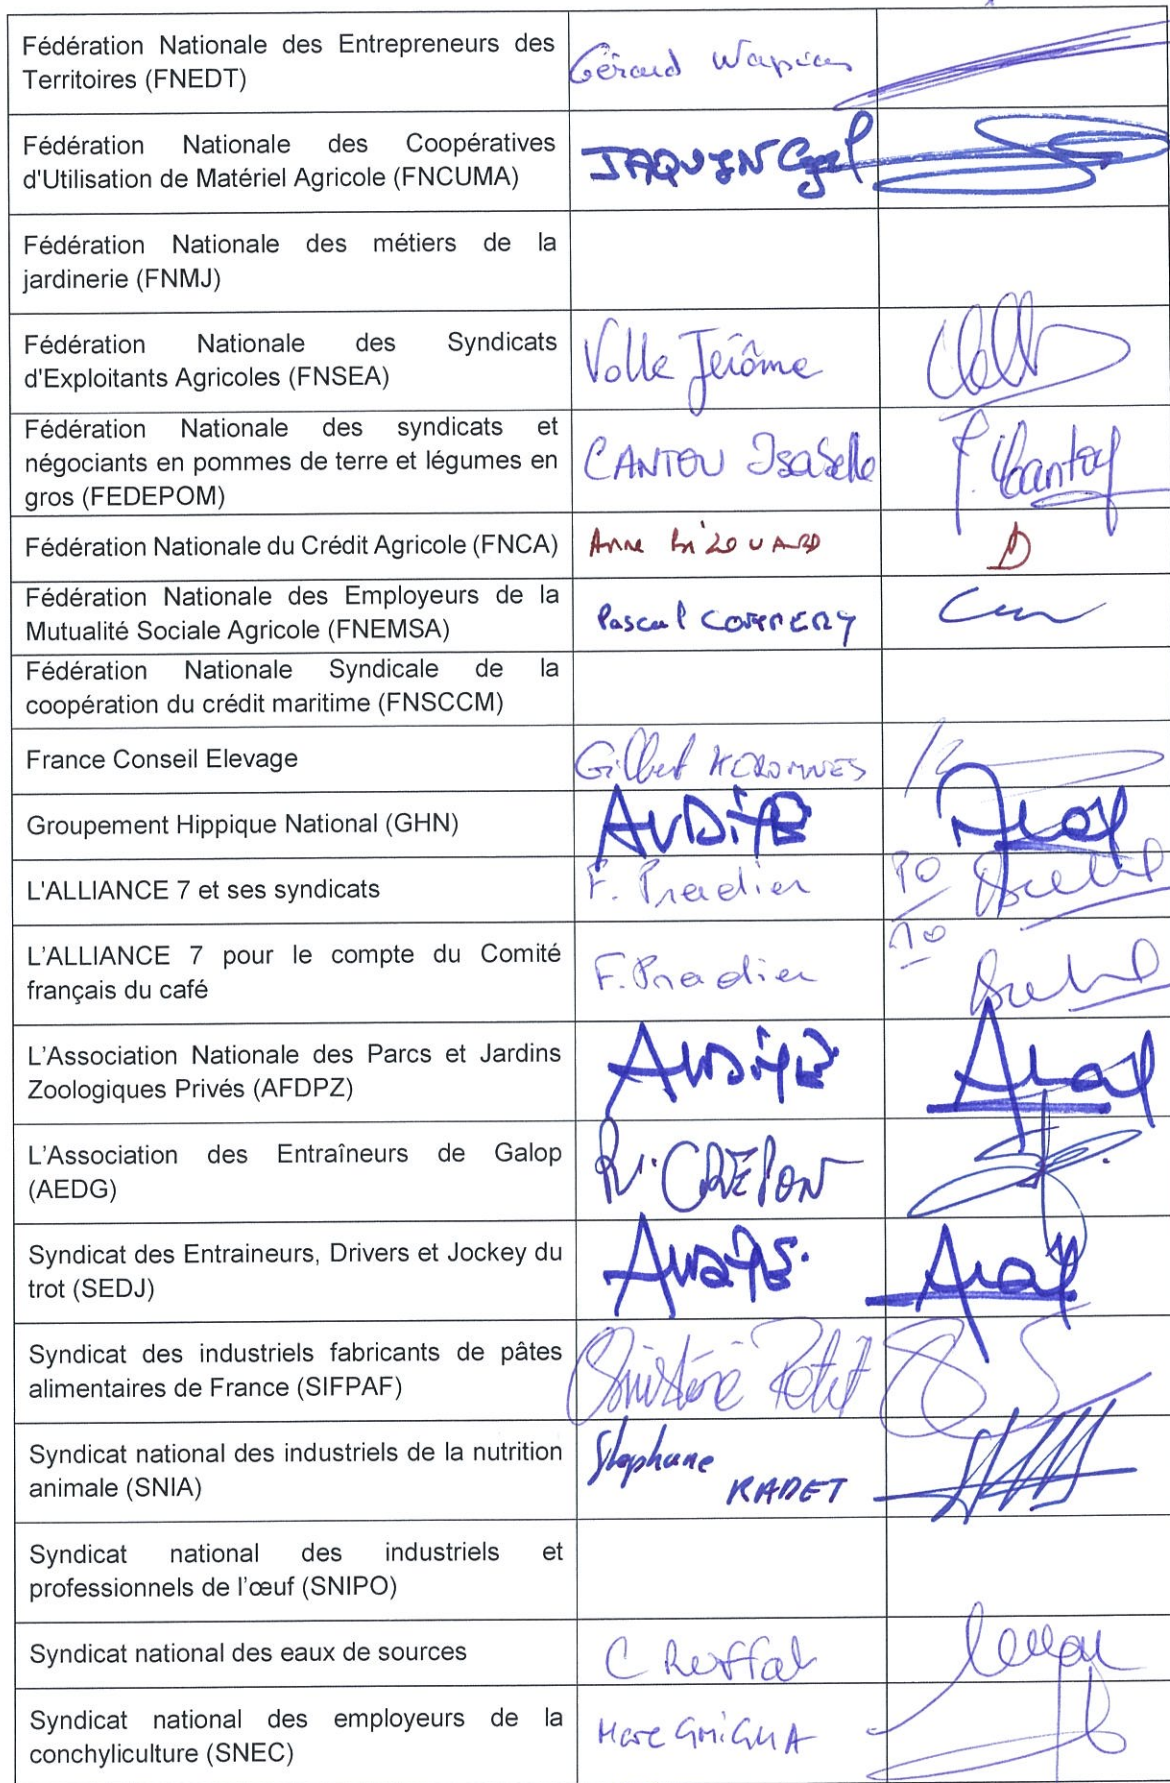 Fédération Nationale des Entrepreneurs des
Territoires (FNEDT)
Gérard
Fédération Nationale des Coopératives
d'Utilisation de Matériel Agricole (FNCUMA)
JAQUIN
Fédération Nationale des métiers de la
jardinerie (FNMJ)
Fédération Nationale des Syndicats
d'Exploitants Agricoles (FNSEA)
Volle Jérôme
Fédération Nationale des syndicats et
négociants en pommes de terre et légumes en
gros (FEDEPOM)
CANTOU Isabelle
Fédération Nationale du Crédit Agricole (FNCA)
Anne
Fédération Nationale des Employeurs de la
Mutualité Sociale Agricole (FNEMSA)
Pascal
Fédération Nationale Syndicale de la
coopération du crédit maritime (FNSCCM)
France Conseil Elevage
Gilbert
Groupement Hippique National (GHN)
L'ALLIANCE 7 et ses syndicats
F. Pradier
PO
L'ALLIANCE 7 pour le compte du Comité
français du café
F. Pradier
PO
L'Association Nationale des Parcs et Jardins
Zoologiques Privés (AFDPZ)
L'Association des Entraîneurs de Galop
(AEDG)
CREPON
Syndicat des Entraineurs, Drivers et Jockey du
trot (SEDJ)
Syndicat des industriels fabricants de pâtes
alimentaires de France (SIFPAF)
Petit
Syndicat national des industriels de la nutrition
animale (SNIA)
Stephane
RADET
Syndicat national des industriels et
professionnels de l'œuf (SNIPO)
Syndicat national des eaux de sources
C Ruffat
Syndicat national des employeurs de la
conchyliculture (SNEC)